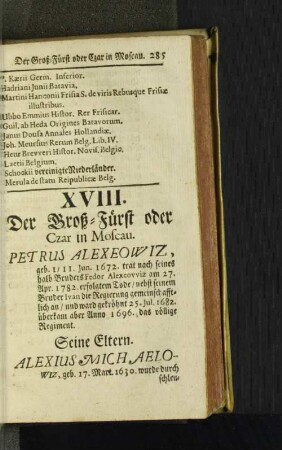 Der Groß-Fürst oder Czar in Moscau. 285
P. Kærii Germ. Inferior.
Hadriani Junii Batavia,
Martini Hanconii Frisia S. de viris Rebusque Frisiæ
illustribus.
Ubbo Emmius Histor. Rer Frisicar.
Guil. ab Heda Origines Batavorum.
Janus Dousa Annales Hollandiæ.
Joh. Meursius Rerum Belg. Lib. IV.
Henr Breweri Histor. Noviſ. Belgic.
Laetii Belgium.
Schookii vereinigte Niederländer.
Merula de statu Reipublicæ Belg.
XVIII.
Der Groß-Fürst oder
Czar in Moscau.
PETRUS ALEXEOWIZ,
geb. 1/11. Jun. 1672. trat nach seines
halb Bruders Fedor Alexeovviz am 27.
Apr. 1782. erfolgtem Tode/ nebst seinem
Bruder Ivan die Regierung gemeinschafft-
lich an/ und ward gekröhnt 25. Jul. 1682.
überkam aber Anno 1696. das völlige
Regiment.
Seine Eltern.
ALEXIUS MICHAELO-
WIZ, geb. 17. Mart. 1630. wurde durch
schlen-